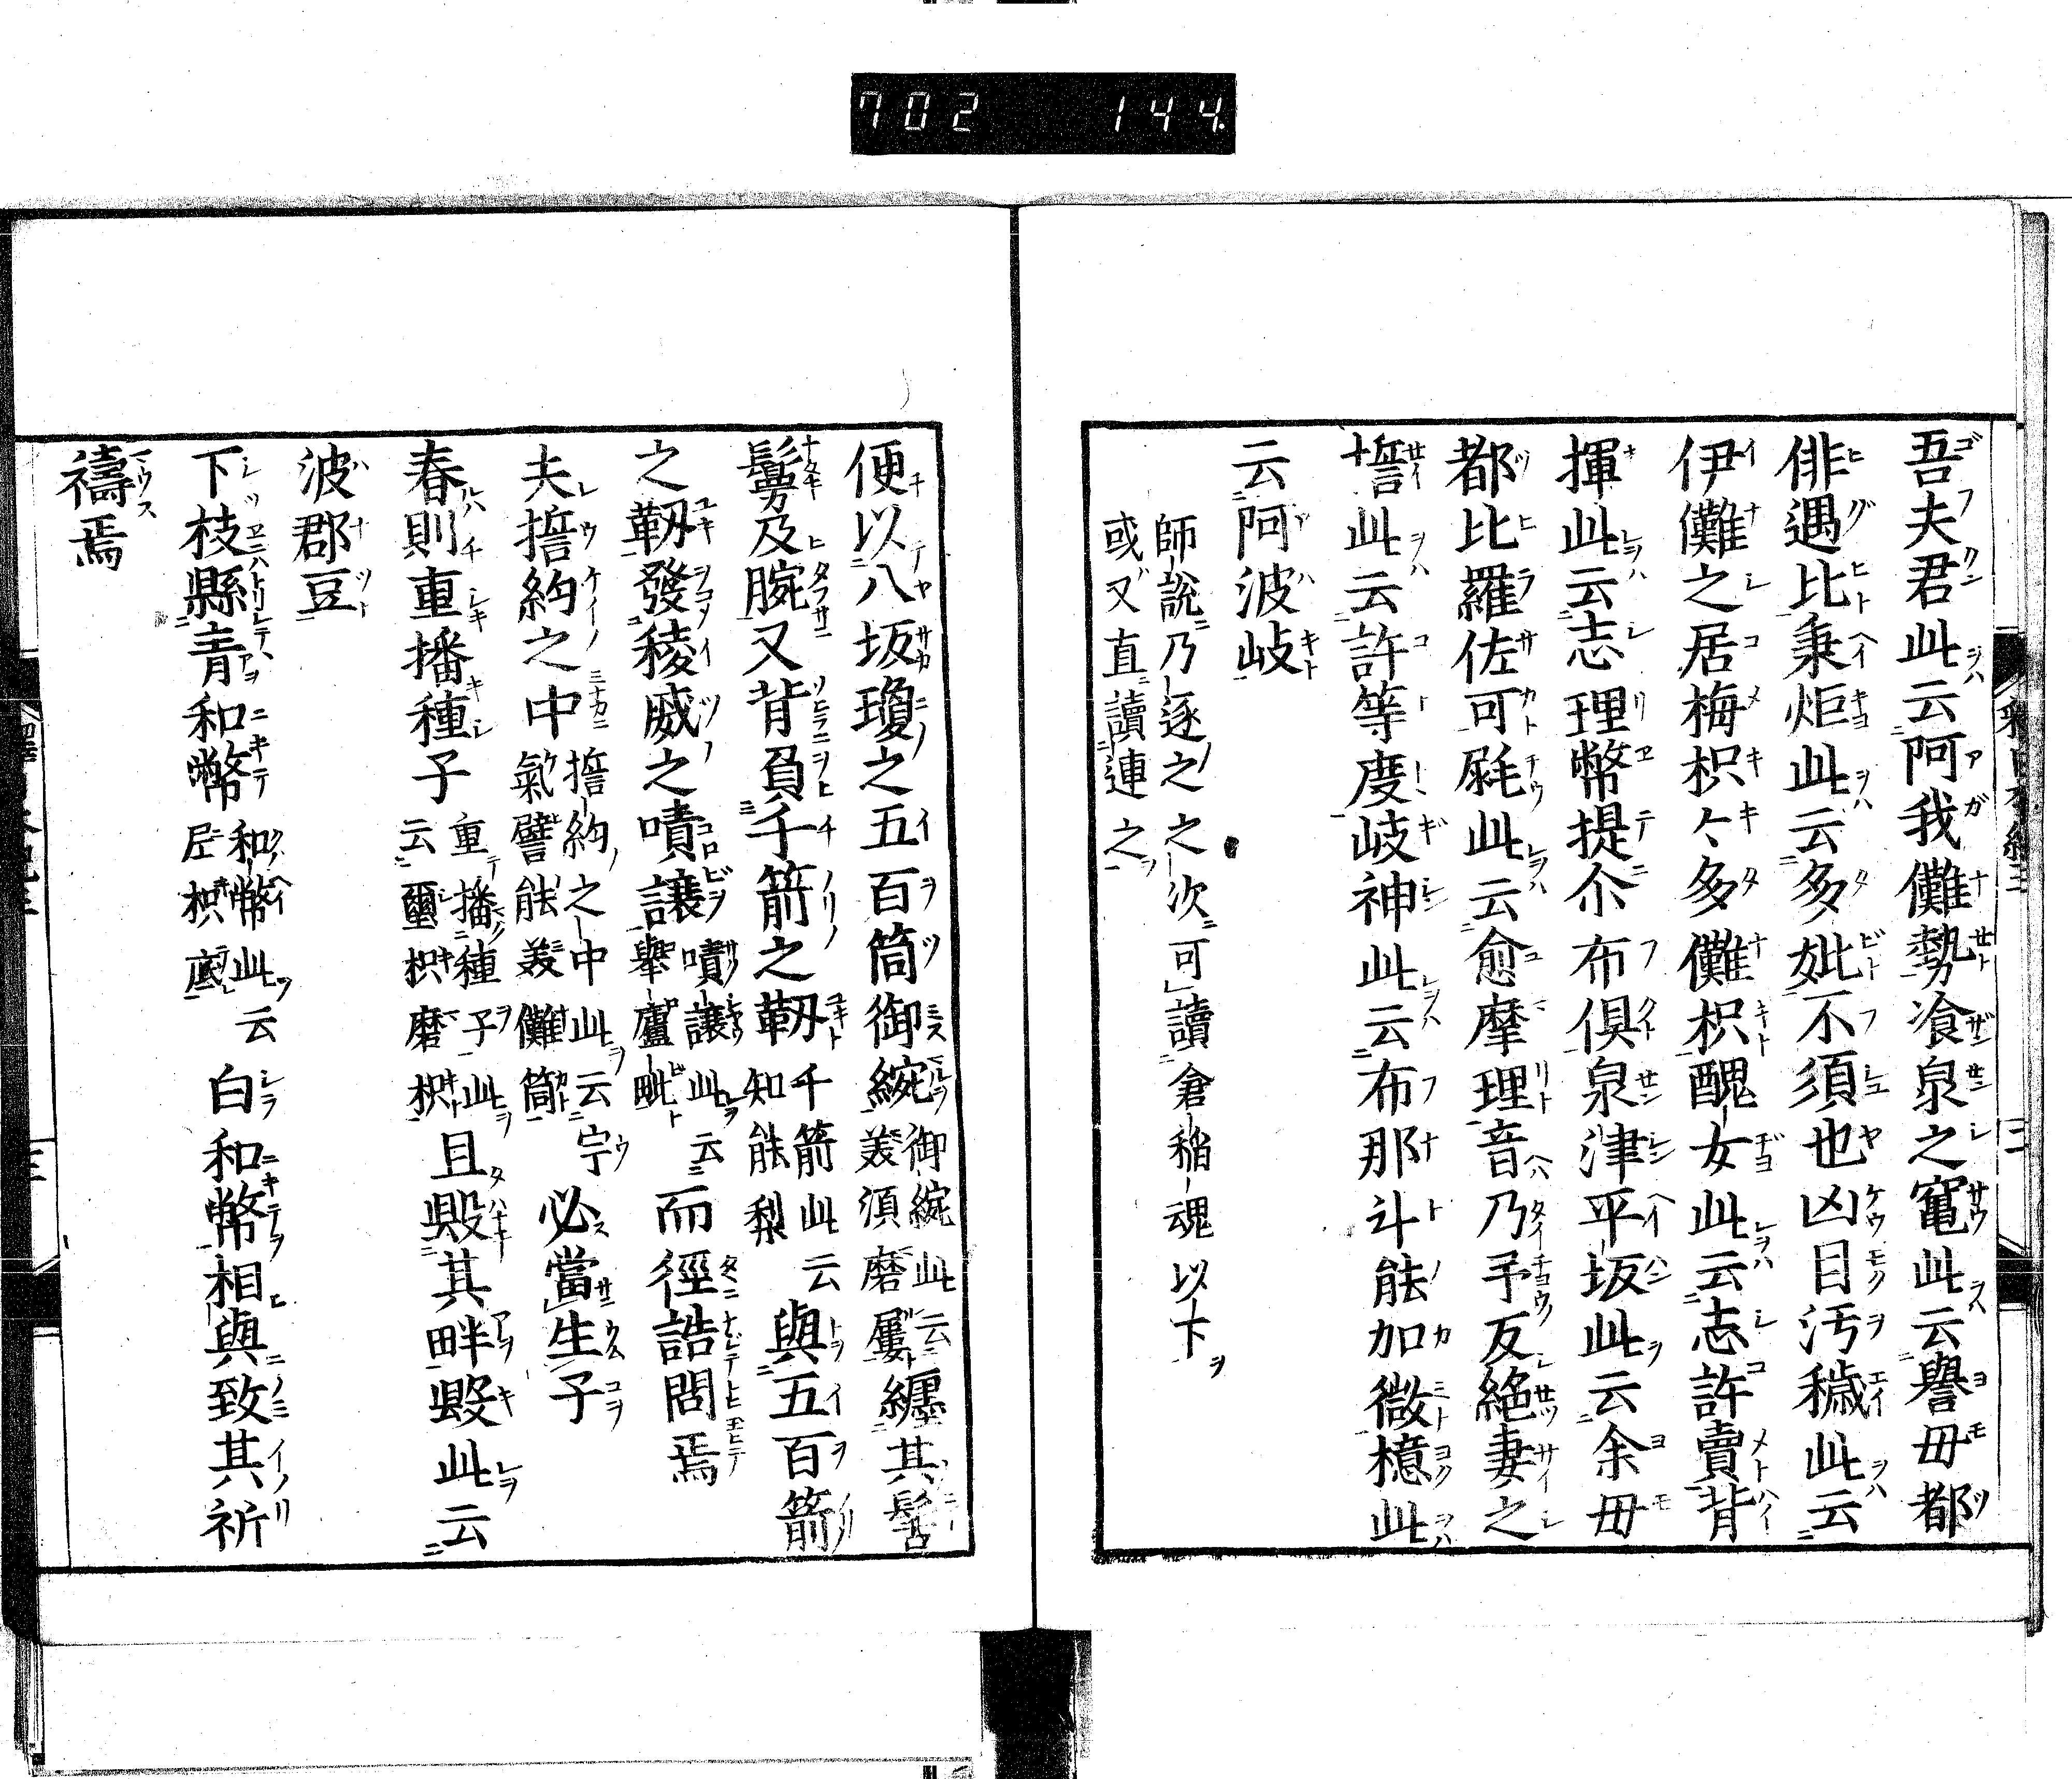 702 144
吾夫君此云阿我儺勢飡泉之竃此云譽毋都
俳遇比秉炬此云多妣不須也凶目汚穢此云
伊儺之居梅枳々多儺枳醜女此云志許賣背
揮此云志理幣提尒布倶泉津平坂此云余毋
都比羅佐可㞙此云愈摩理音乃予反絶妻之
誓此云許等度岐神此云布那斗能加微檍此
云阿波岐
師說乃逐之之次可讀倉稲魂以下
或又直讀連之
便以八坂瓊之五百筒御綩
御綩此云
羙須磨屢
纒其髻
鬘及腕又背負千箭之靫
千箭此云
知能梨
與五百箭
之靫發稜威之嘖讓
嘖讓此云
擧廬毗
而徑詰問焉
夫誓約之中
誓約之中此云宇
氣譬能羙儺箇
必當生子
春則重播種子
重播種子此
云璽枳磨枳
且毀其畔毀此云
波郡豆
下枝縣青和幣
和幣此云
尼枳底
白和幣相與致其祈
禱焉